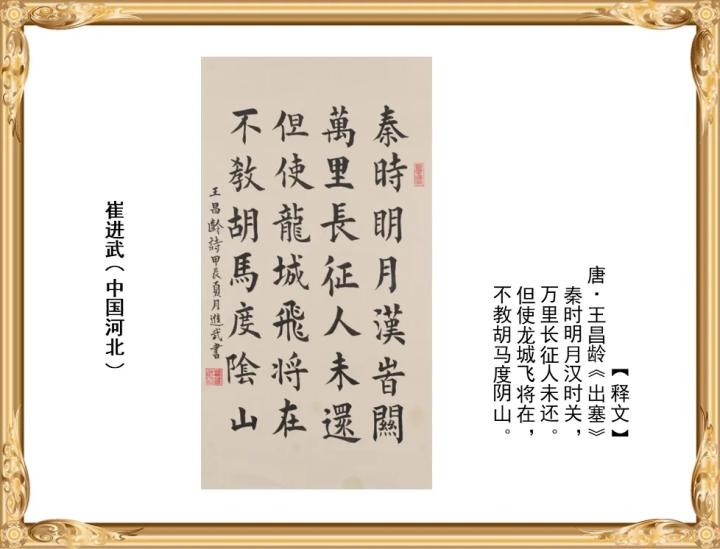 秦時明月漢旹關
萬里長征人未還
但使龍城飛將在
不教胡馬度陰山
王昌齡詩甲辰夏月進武書
崔进武（中国河北）
【释文】
唐·王昌龄《出塞》
秦时明月汉时关，
万里长征人未还。
但使龙城飞将在，
不教胡马度阴山。